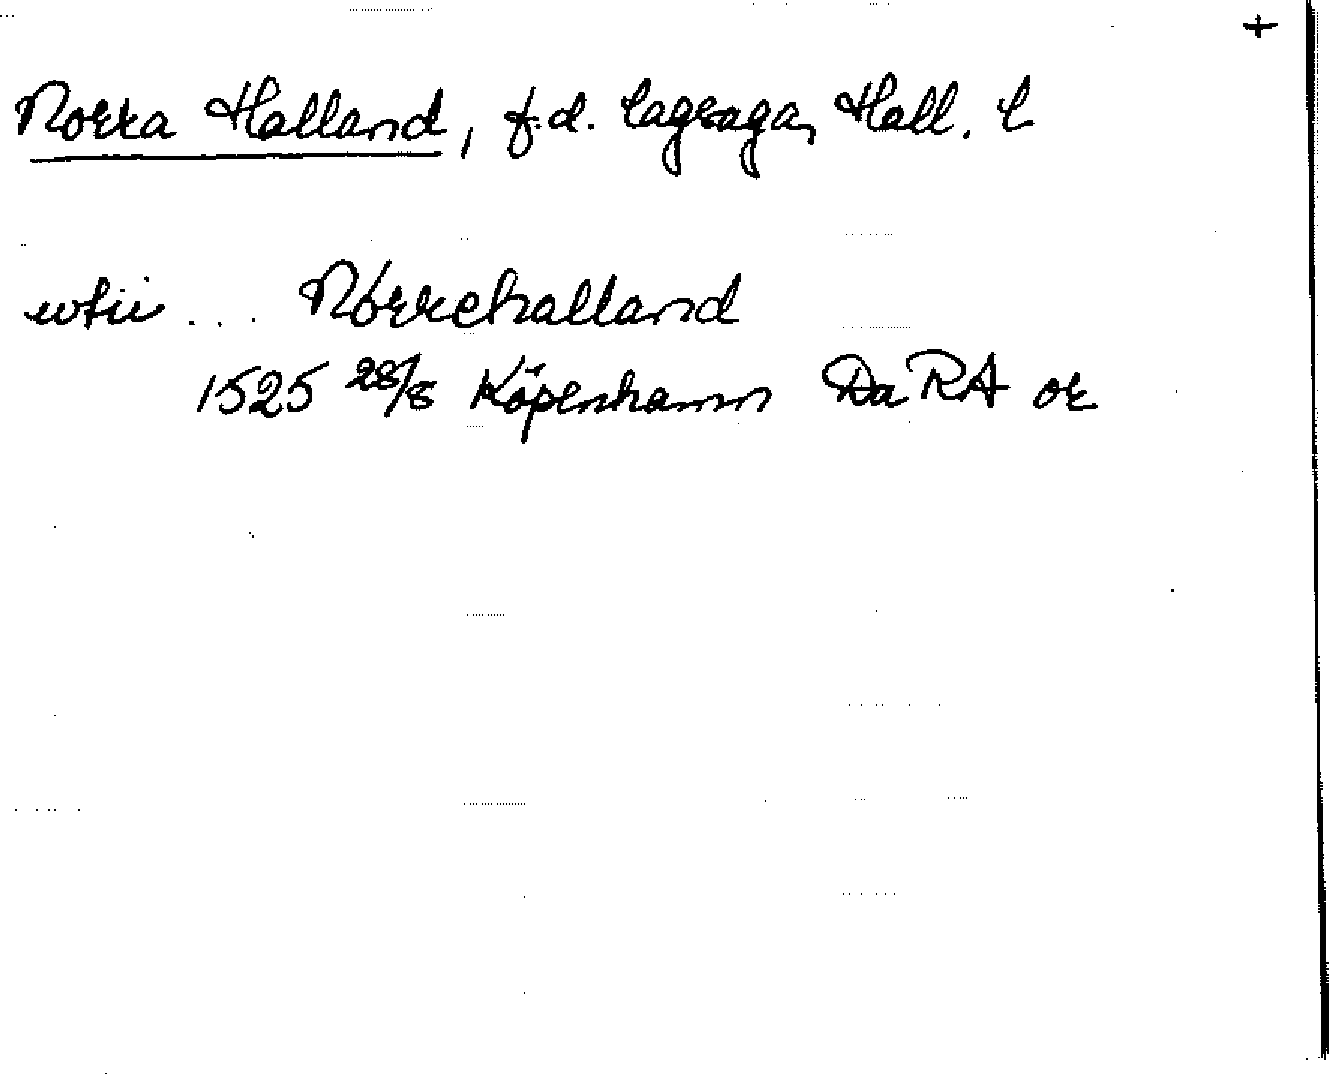 +
Norra Halland, f.d. lagsaga, Hall. l
wtii ... Nörrehalland
1525 28/8 Köpenhamn DaRA or